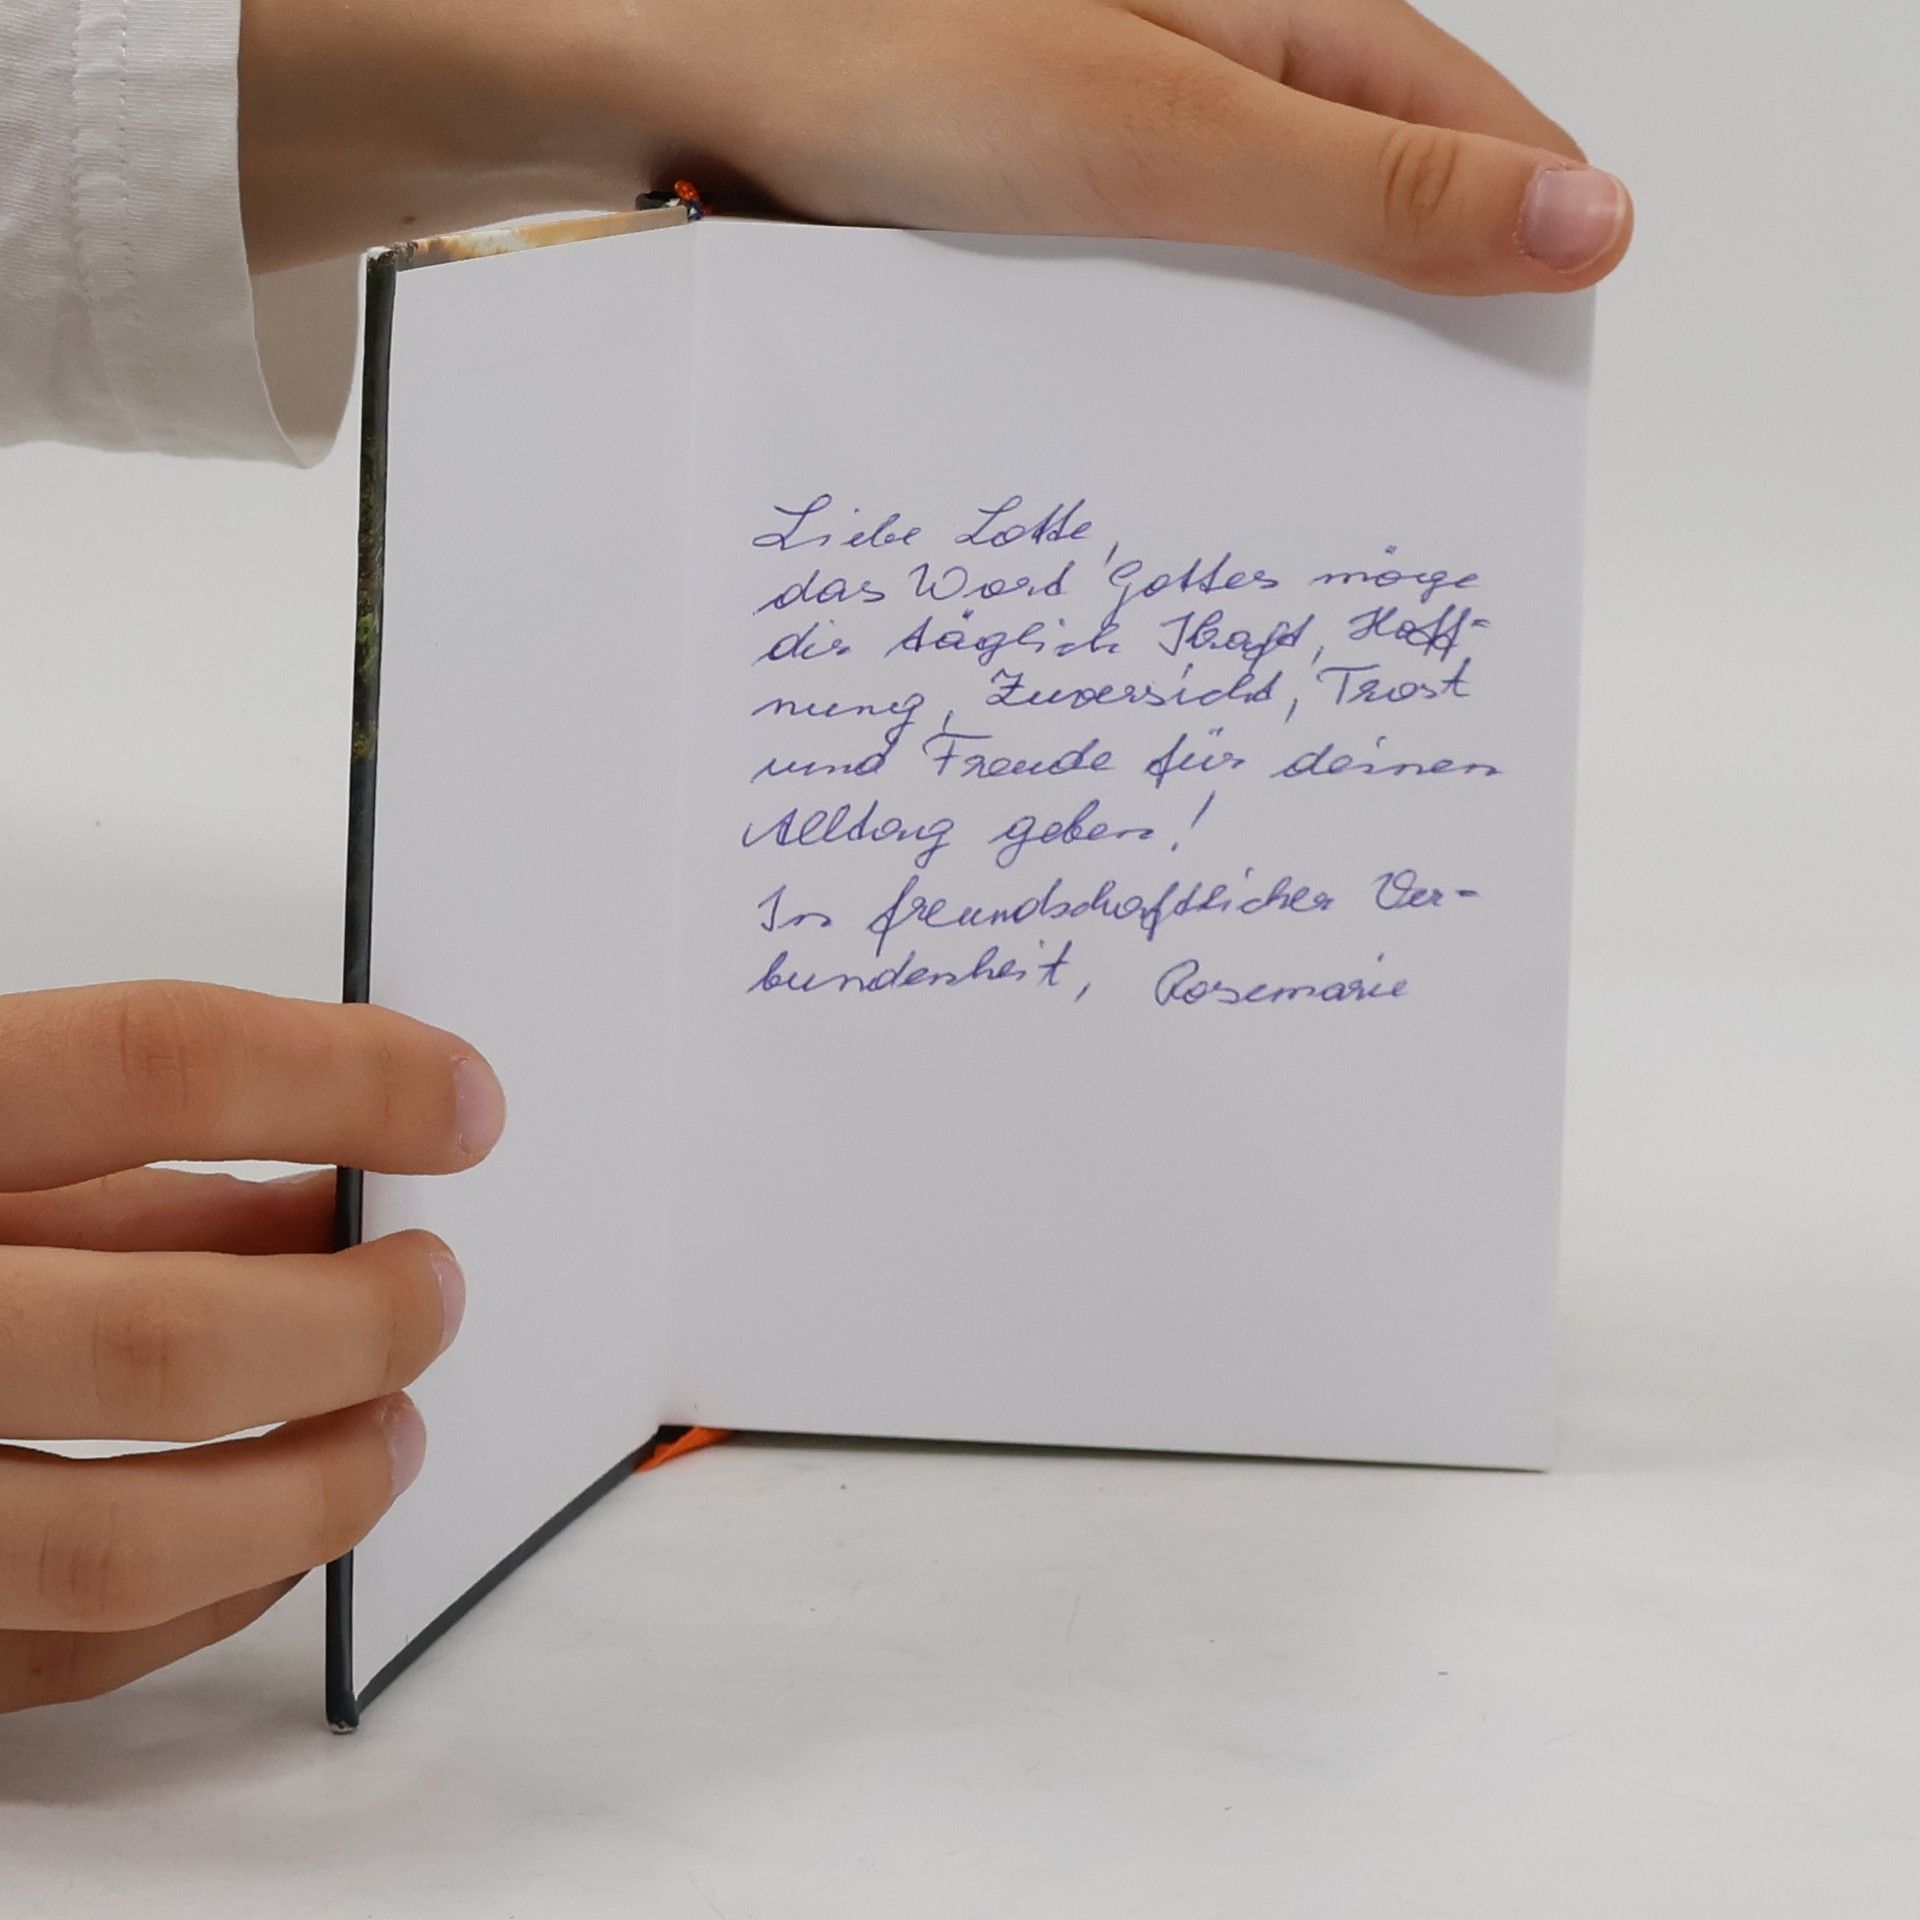 Liebe Lotte,
das Wort Gottes möge
dir täglich Kraft, Hoff-
nung, Zuversicht, Trost
und Freude für deinen
Alltag geben!
In freundschaftlicher Ver-
bundenheit, Rosemarie